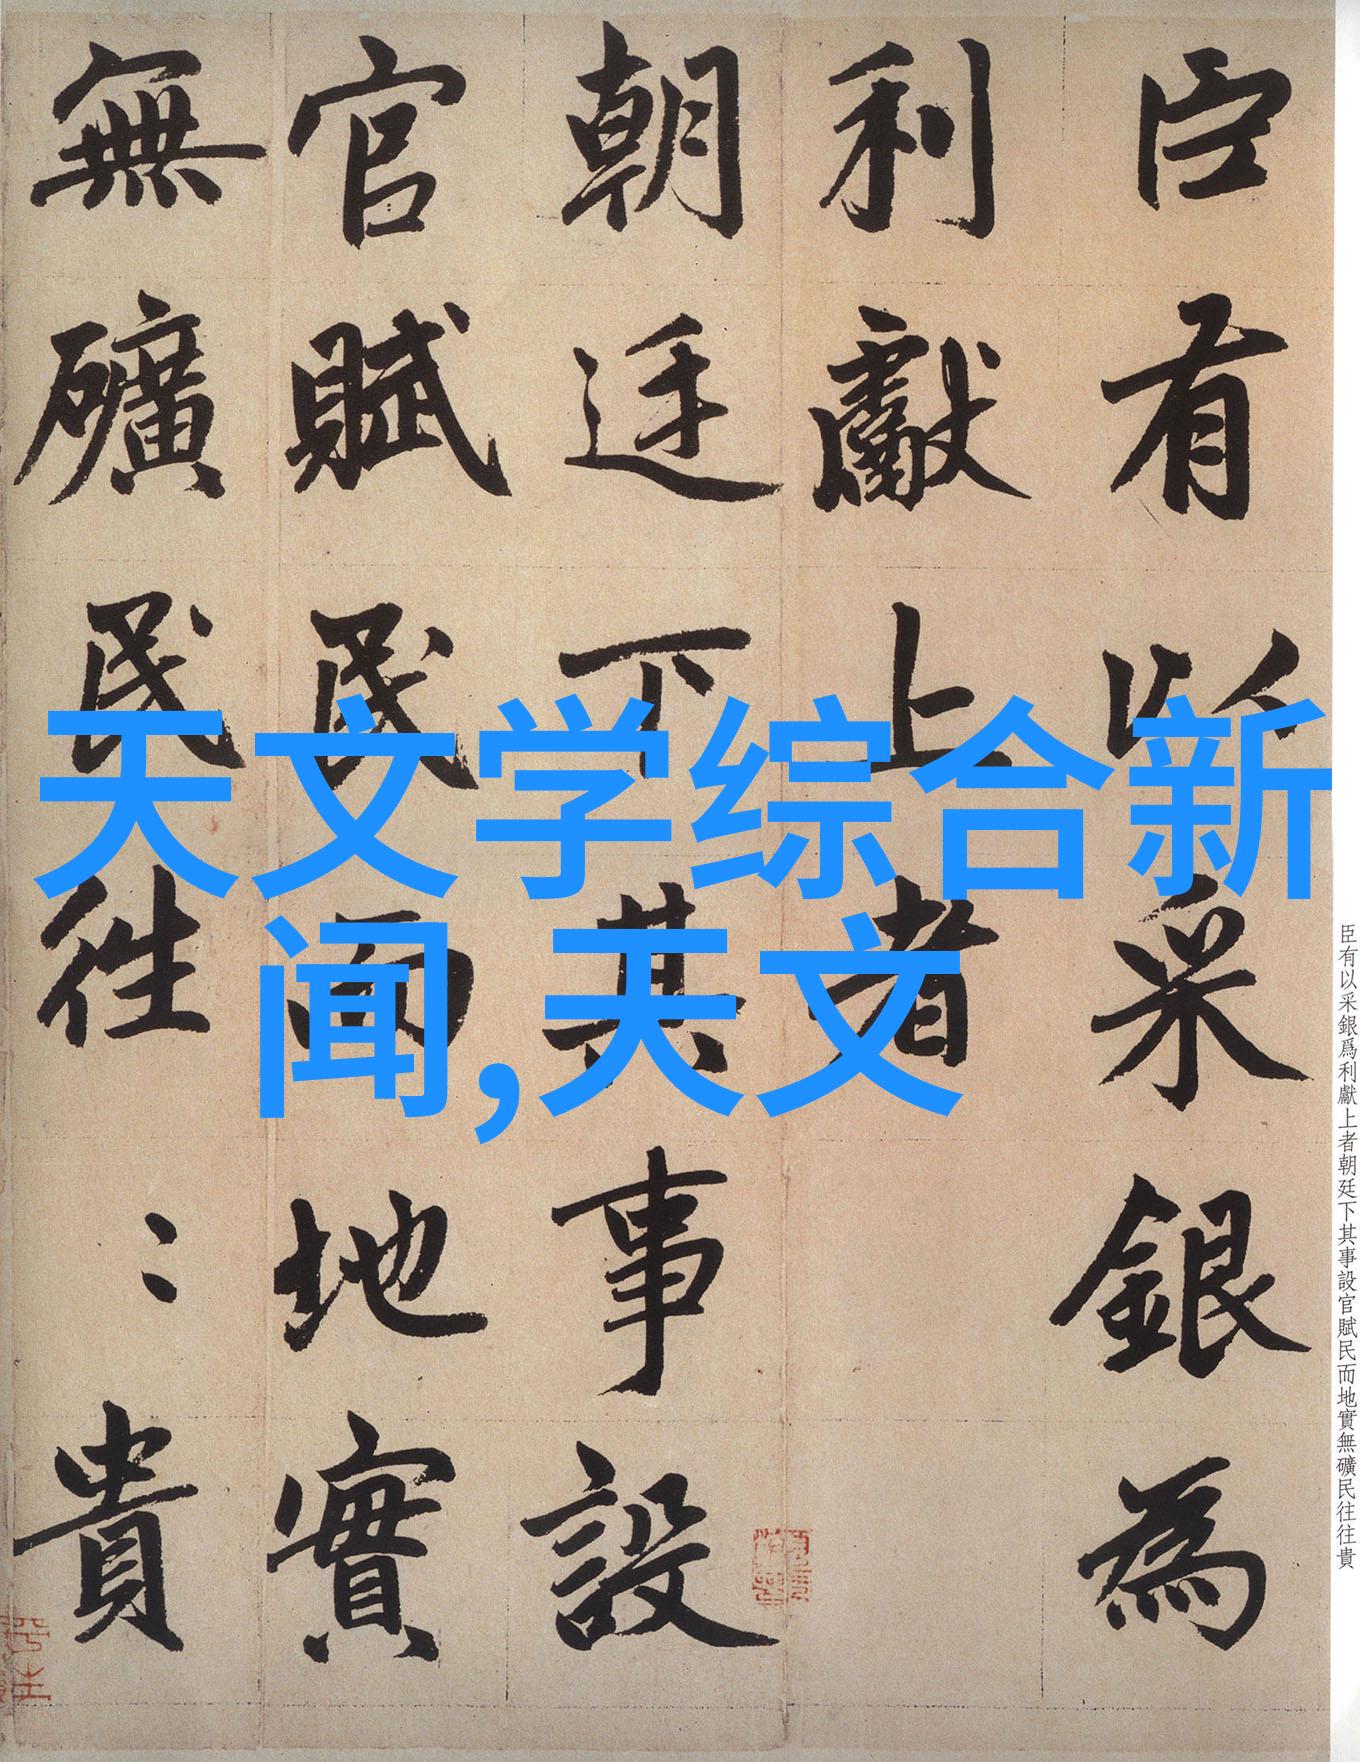 臣有以采銀為
利獻上者
朝廷下其事設
官賦民而地實
無礦民往〻貴
天文学综合新
闻,天文
臣有以采銀爲利獻上者朝廷下其事設官賦民而地實無礦民往往貴